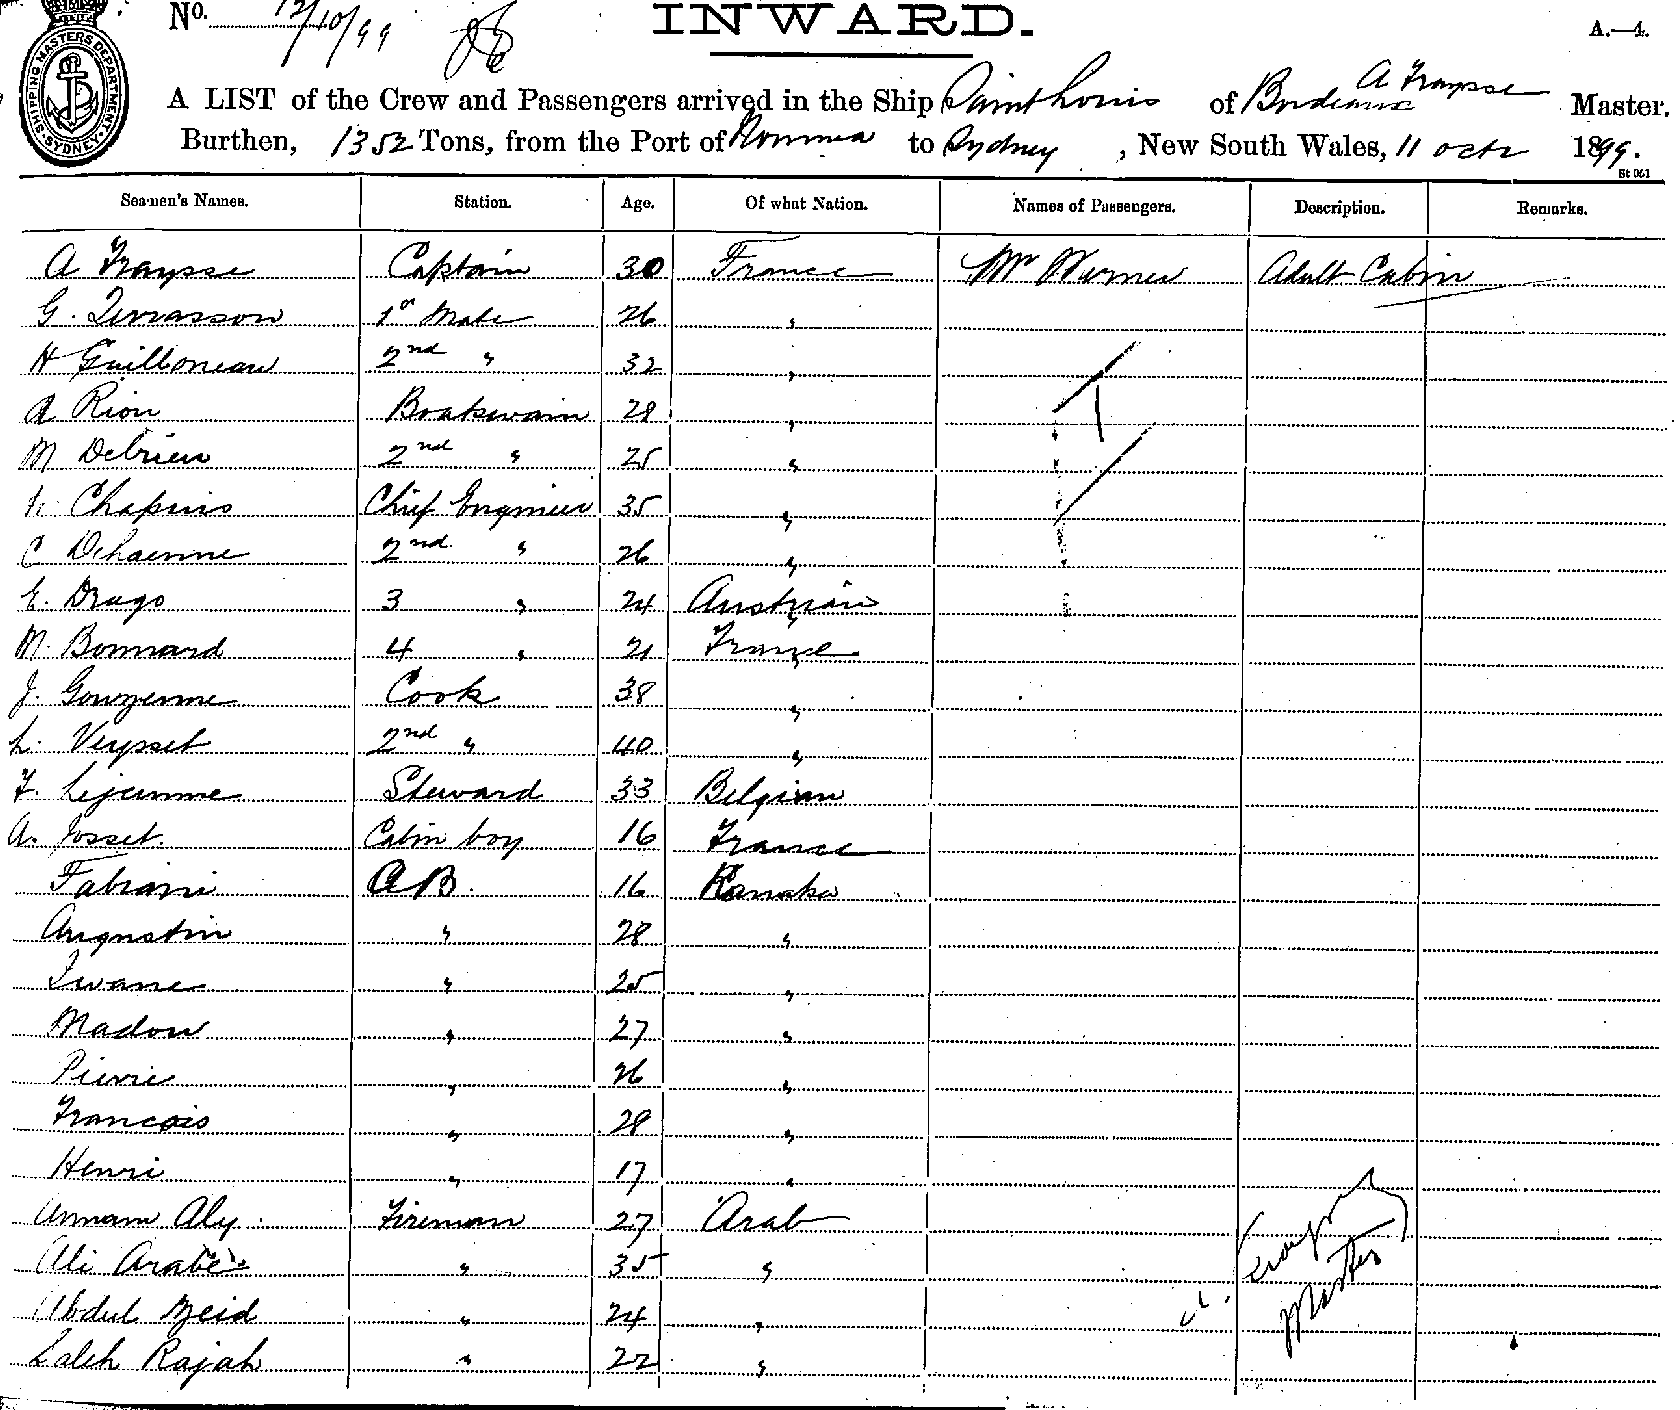 No. 12/10/99
INWARD.
A.—4.
SHIPPING MASTERS DEPARTMENT SYDNEY
A LIST of the Crew and Passengers arrived in the Ship Saint Louis of Bordeaux A Fraysse Master.
Burthen, 1352 Tons, from the Port of Noumea to Sydney, New South Wales, 11 Octr 1899.
St 061
Seamen's Names. Station. Age. Of what Nation. Names of Passengers. Description. Remarks.
A Fraysse Captain 30 France Mr Warner Adult Cabin
G. Terrasson 1st Mate 26 "
H Guilloneau 2nd " 32 "
A Rion Boatswain 28 "
M Debrieu 2nd " 25 "
Chapuis Chief Engineer 35 "
C Dehaenne 2nd " 26 "
E. Drago 3 " 24 Austrian
M. Bonnard 4 " 21 France
J. Gouzenne Cook 38 "
L. Veysset 2nd " 40 "
F. Lejeunne Steward 33 Belgian
A. Josset. Cabin boy 16 France
Fabiani AB. 16 Kanaka
Augustin " 28 "
Iwane " 25 "
Madou " 27 "
Pierre " 26 "
Francois " 28 "
Henri " 17 "
Annam Aly Fireman 27 Arab
Ali Arabe " 35 "
Abdul Zeid " 24 "
Saleh Rajah " 22 "
Master